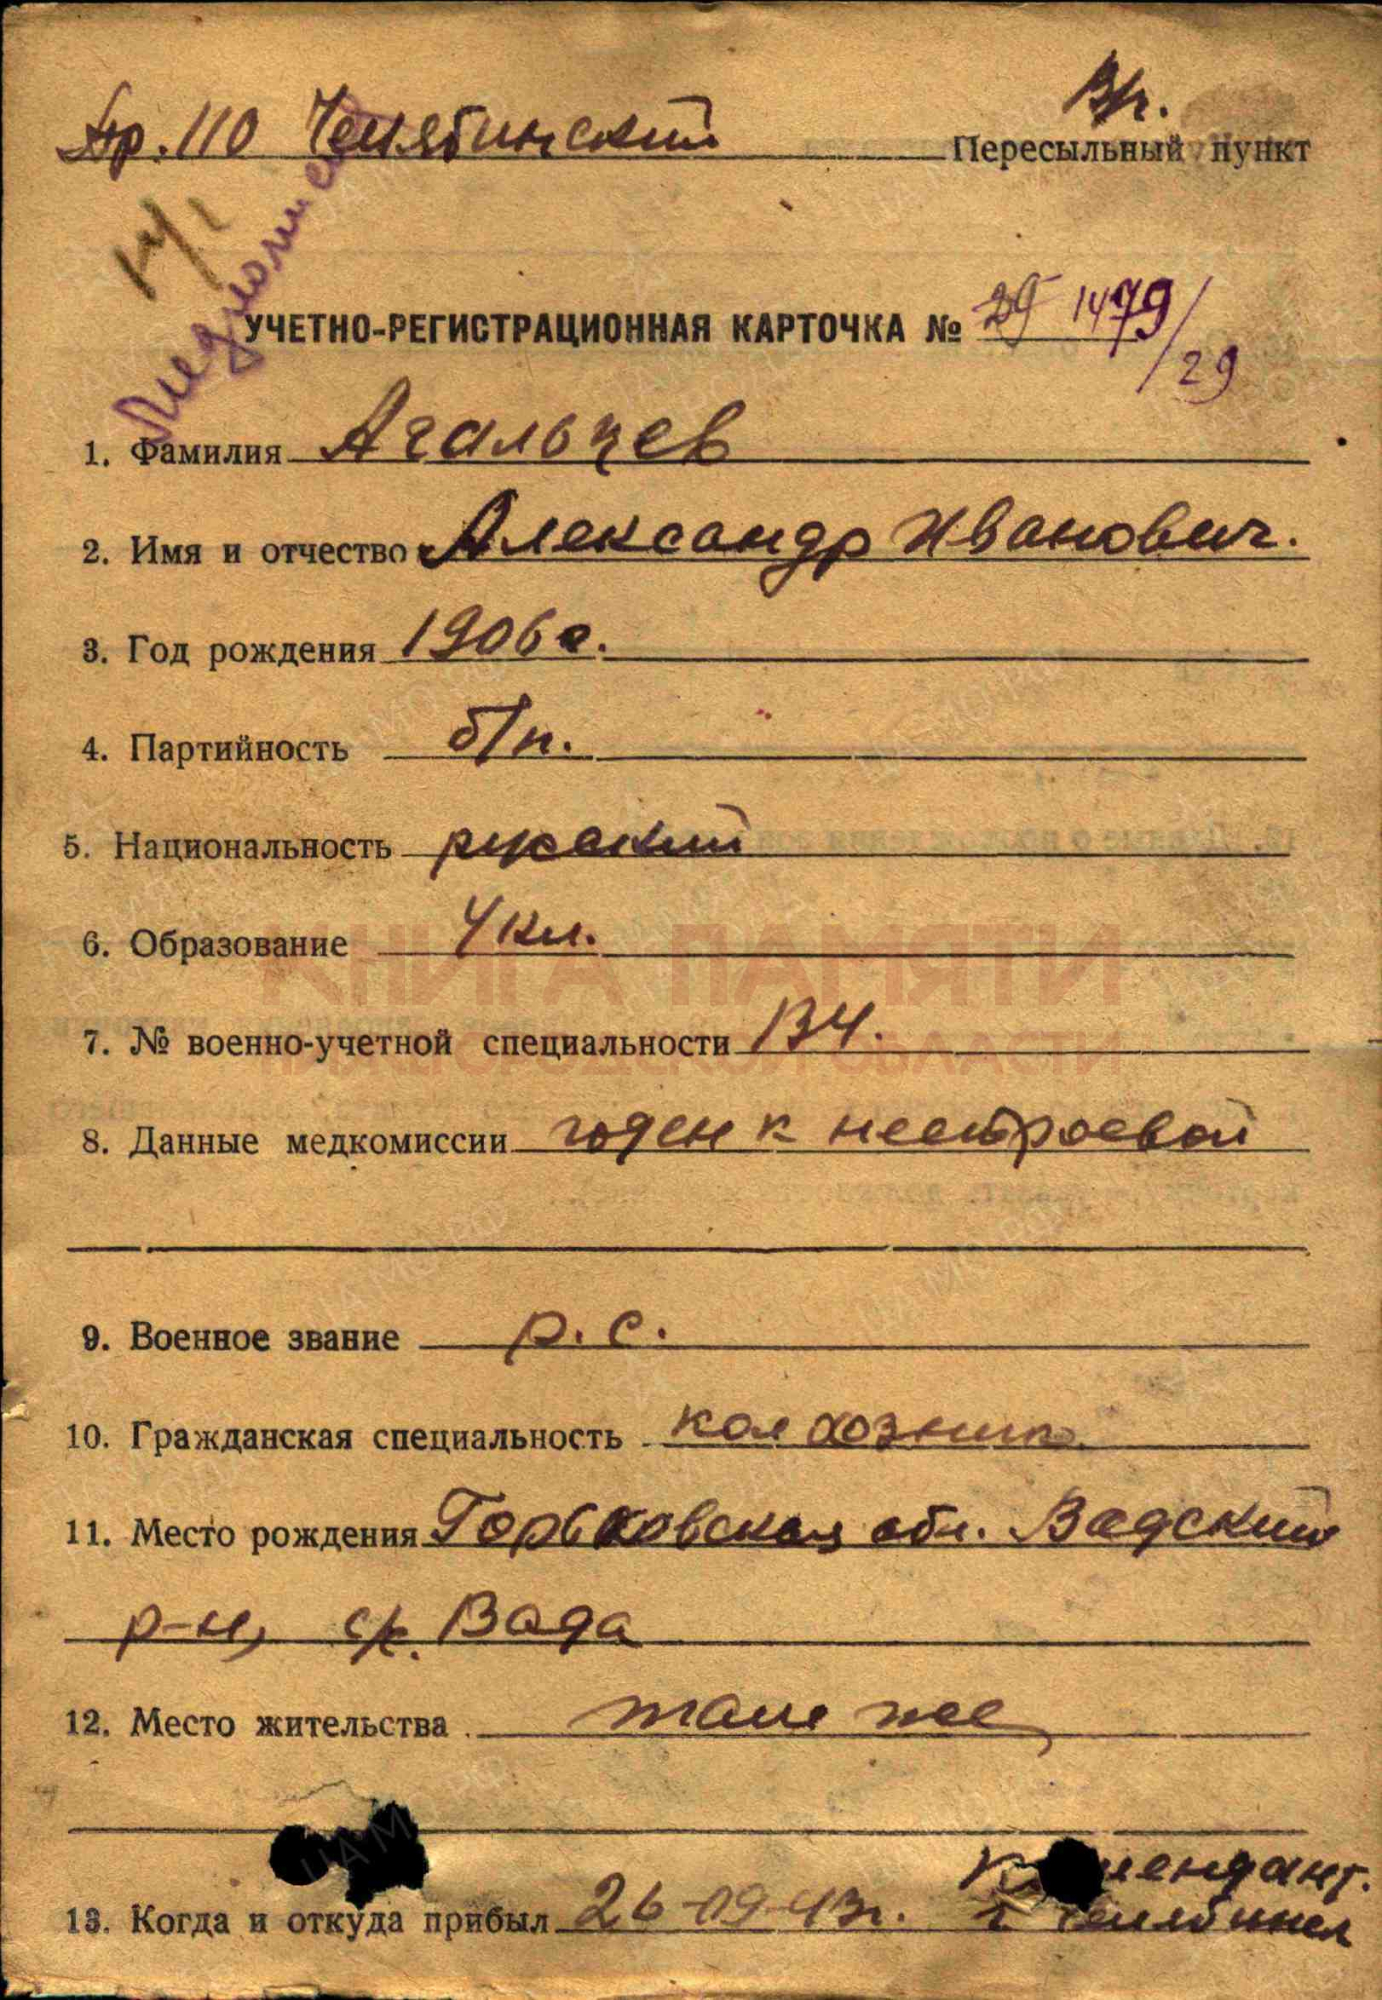 В/ч.
Пр. 110 Челябинский Пересыльный пункт
УЧЕТНО-РЕГИСТРАЦИОННАЯ КАРТОЧКА № 29 1479/29
1. Фамилия Агальцев
2. Имя и отчество Александр Иванович.
3. Год рождения 1906 г.
4. Партийность б/п.
5. Национальность русский
6. Образование 4 кл.
КНИГА ПАМЯТИ
7. № военно-учетной специальности 134.
НИЖЕГОРОДСКОЙ ОБЛАСТИ
8. Данные медкомиссии годен к нестроевой
9. Военное звание р. с.
10. Гражданская специальность колхозник
11. Место рождения Горьковская обл. Вадский
р-н, с/с. Вада
12. Место жительства там же
13. Когда и откуда прибыл 26-09-43 г. г Челябинск